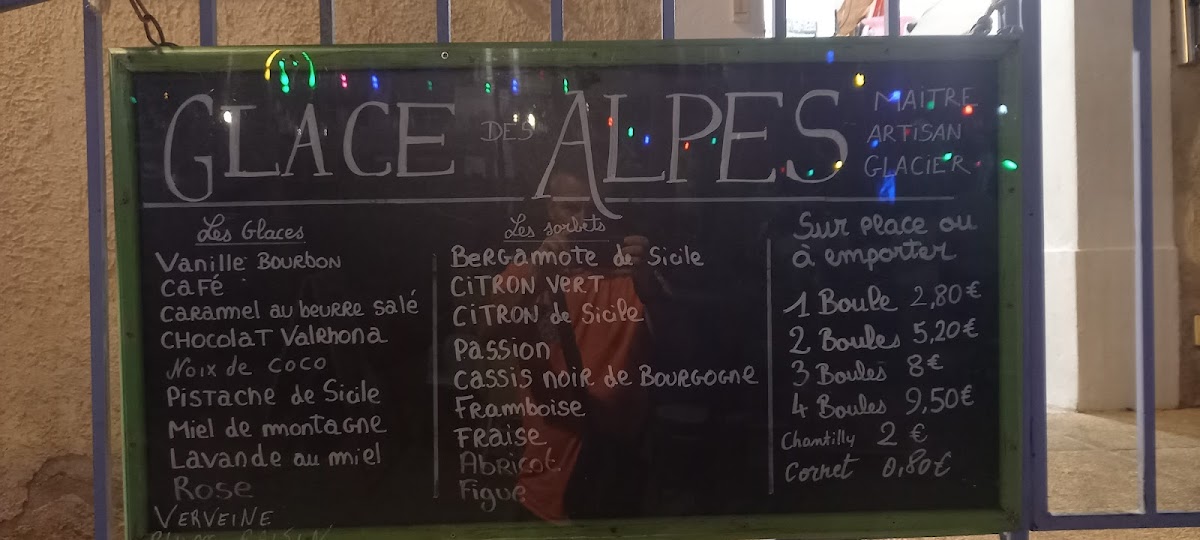 GLACE DES ALPES
MAITRE
ARTISAN
GLACIER
Les Glaces
Vanille BOURBON
CaFé
caramel au beurre salé
CHocolaT Valrhona
Noix de coco
PiSTache de Sicile
Miel de montagne
Lavande au miel
Rose
VERVEINE
Les sorbets
BeRGamote de Sicile
CiTRON VERT
CiTRON de Sicile
Passion
Cassis noir de BOURGOGNE
Framboise
FRaise
Abricot
Figue
Sur place ou
à emporter
1 Boule 2,80€
2 Boules 5,20€
3 Boules 8€
4 Boules 9,50€
Chantilly 2€
Cornet 0,80€